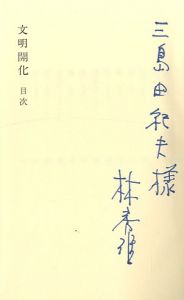 三島由紀夫様
林秀雄
文明開化 目次